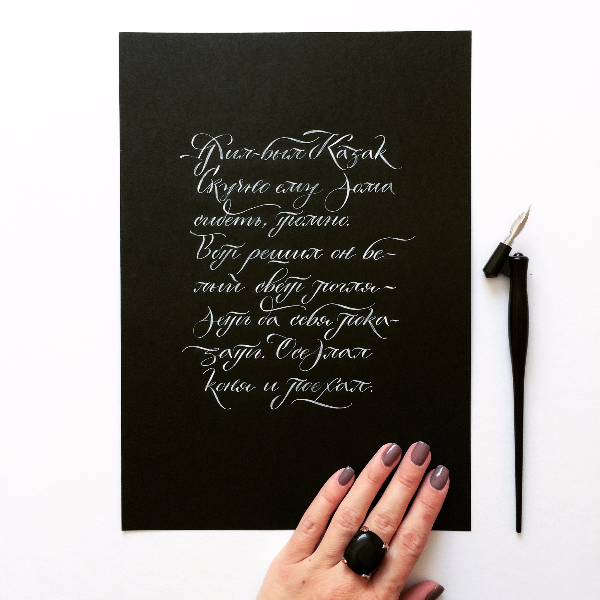 Жил-был Казак
Скучно ему дома
сидеть, тошно.
Вот решил он бе-
лый свет погля-
деть да себя пока-
зать. Оседлал
коня и поехал.